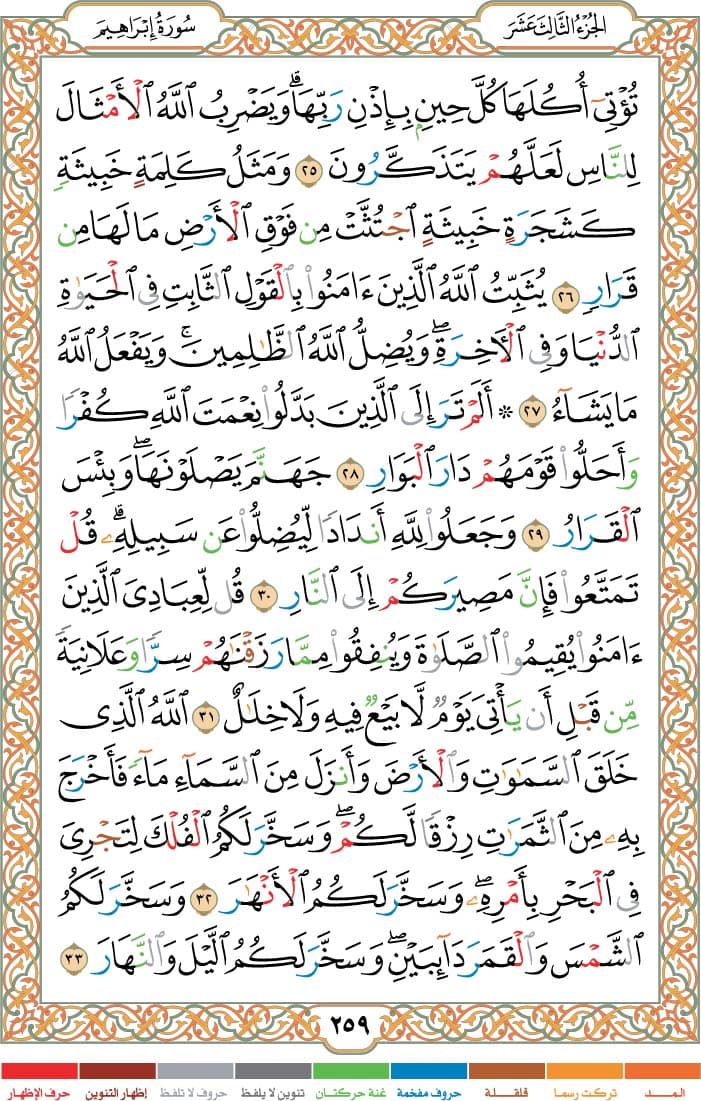 الجزء الثالث عشر
سورة إبراهيم
تُؤْتِىٓ أُكُلَهَا كُلَّ حِينٍۭ بِإِذْنِ رَبِّهَاۗ وَيَضْرِبُ ٱللَّهُ ٱلْأَمْثَالَ
لِلنَّاسِ لَعَلَّهُمْ يَتَذَكَّرُونَ ٢٥ وَمَثَلُ كَلِمَةٍ خَبِيثَةٍ
كَشَجَرَةٍ خَبِيثَةٍ ٱجْتُثَّتْ مِن فَوْقِ ٱلْأَرْضِ مَا لَهَا مِن
قَرَارٍ ٢٦ يُثَبِّتُ ٱللَّهُ ٱلَّذِينَ ءَامَنُوا۟ بِٱلْقَوْلِ ٱلثَّابِتِ فِى ٱلْحَيَوٰةِ
ٱلدُّنْيَا وَفِى ٱلْـَٔاخِرَةِۖ وَيُضِلُّ ٱللَّهُ ٱلظَّـٰلِمِينَۚ وَيَفْعَلُ ٱللَّهُ
مَا يَشَآءُ ٢٧ ۞ أَلَمْ تَرَ إِلَى ٱلَّذِينَ بَدَّلُوا۟ نِعْمَتَ ٱللَّهِ كُفْرًا
وَأَحَلُّوا۟ قَوْمَهُمْ دَارَ ٱلْبَوَارِ ٢٨ جَهَنَّمَ يَصْلَوْنَهَاۖ وَبِئْسَ
ٱلْقَرَارُ ٢٩ وَجَعَلُوا۟ لِلَّهِ أَندَادًا لِّيُضِلُّوا۟ عَن سَبِيلِهِۦۗ قُلْ
تَمَتَّعُوا۟ فَإِنَّ مَصِيرَكُمْ إِلَى ٱلنَّارِ ٣٠ قُل لِّعِبَادِىَ ٱلَّذِينَ
ءَامَنُوا۟ يُقِيمُوا۟ ٱلصَّلَوٰةَ وَيُنفِقُوا۟ مِمَّا رَزَقْنَـٰهُمْ سِرًّا وَعَلَانِيَةً
مِّن قَبْلِ أَن يَأْتِىَ يَوْمٌ لَّا بَيْعٌ فِيهِ وَلَا خِلَـٰلٌ ٣١ ٱللَّهُ ٱلَّذِى
خَلَقَ ٱلسَّمَـٰوَٰتِ وَٱلْأَرْضَ وَأَنزَلَ مِنَ ٱلسَّمَآءِ مَآءً فَأَخْرَجَ
بِهِۦ مِنَ ٱلثَّمَرَٰتِ رِزْقًا لَّكُمْۖ وَسَخَّرَ لَكُمُ ٱلْفُلْكَ لِتَجْرِىَ
فِى ٱلْبَحْرِ بِأَمْرِهِۦۖ وَسَخَّرَ لَكُمُ ٱلْأَنْهَـٰرَ ٣٢ وَسَخَّرَ لَكُمُ
ٱلشَّمْسَ وَٱلْقَمَرَ دَآئِبَيْنِۖ وَسَخَّرَ لَكُمُ ٱلَّيْلَ وَٱلنَّهَارَ ٣٣
٢٥٩
المـــد تركت رسما قلقـــلة حروف مفخمة غنة حركتـان تنوين لا يلفظ حروف لا تلفظ إظهار التنوين حرف الإظهار